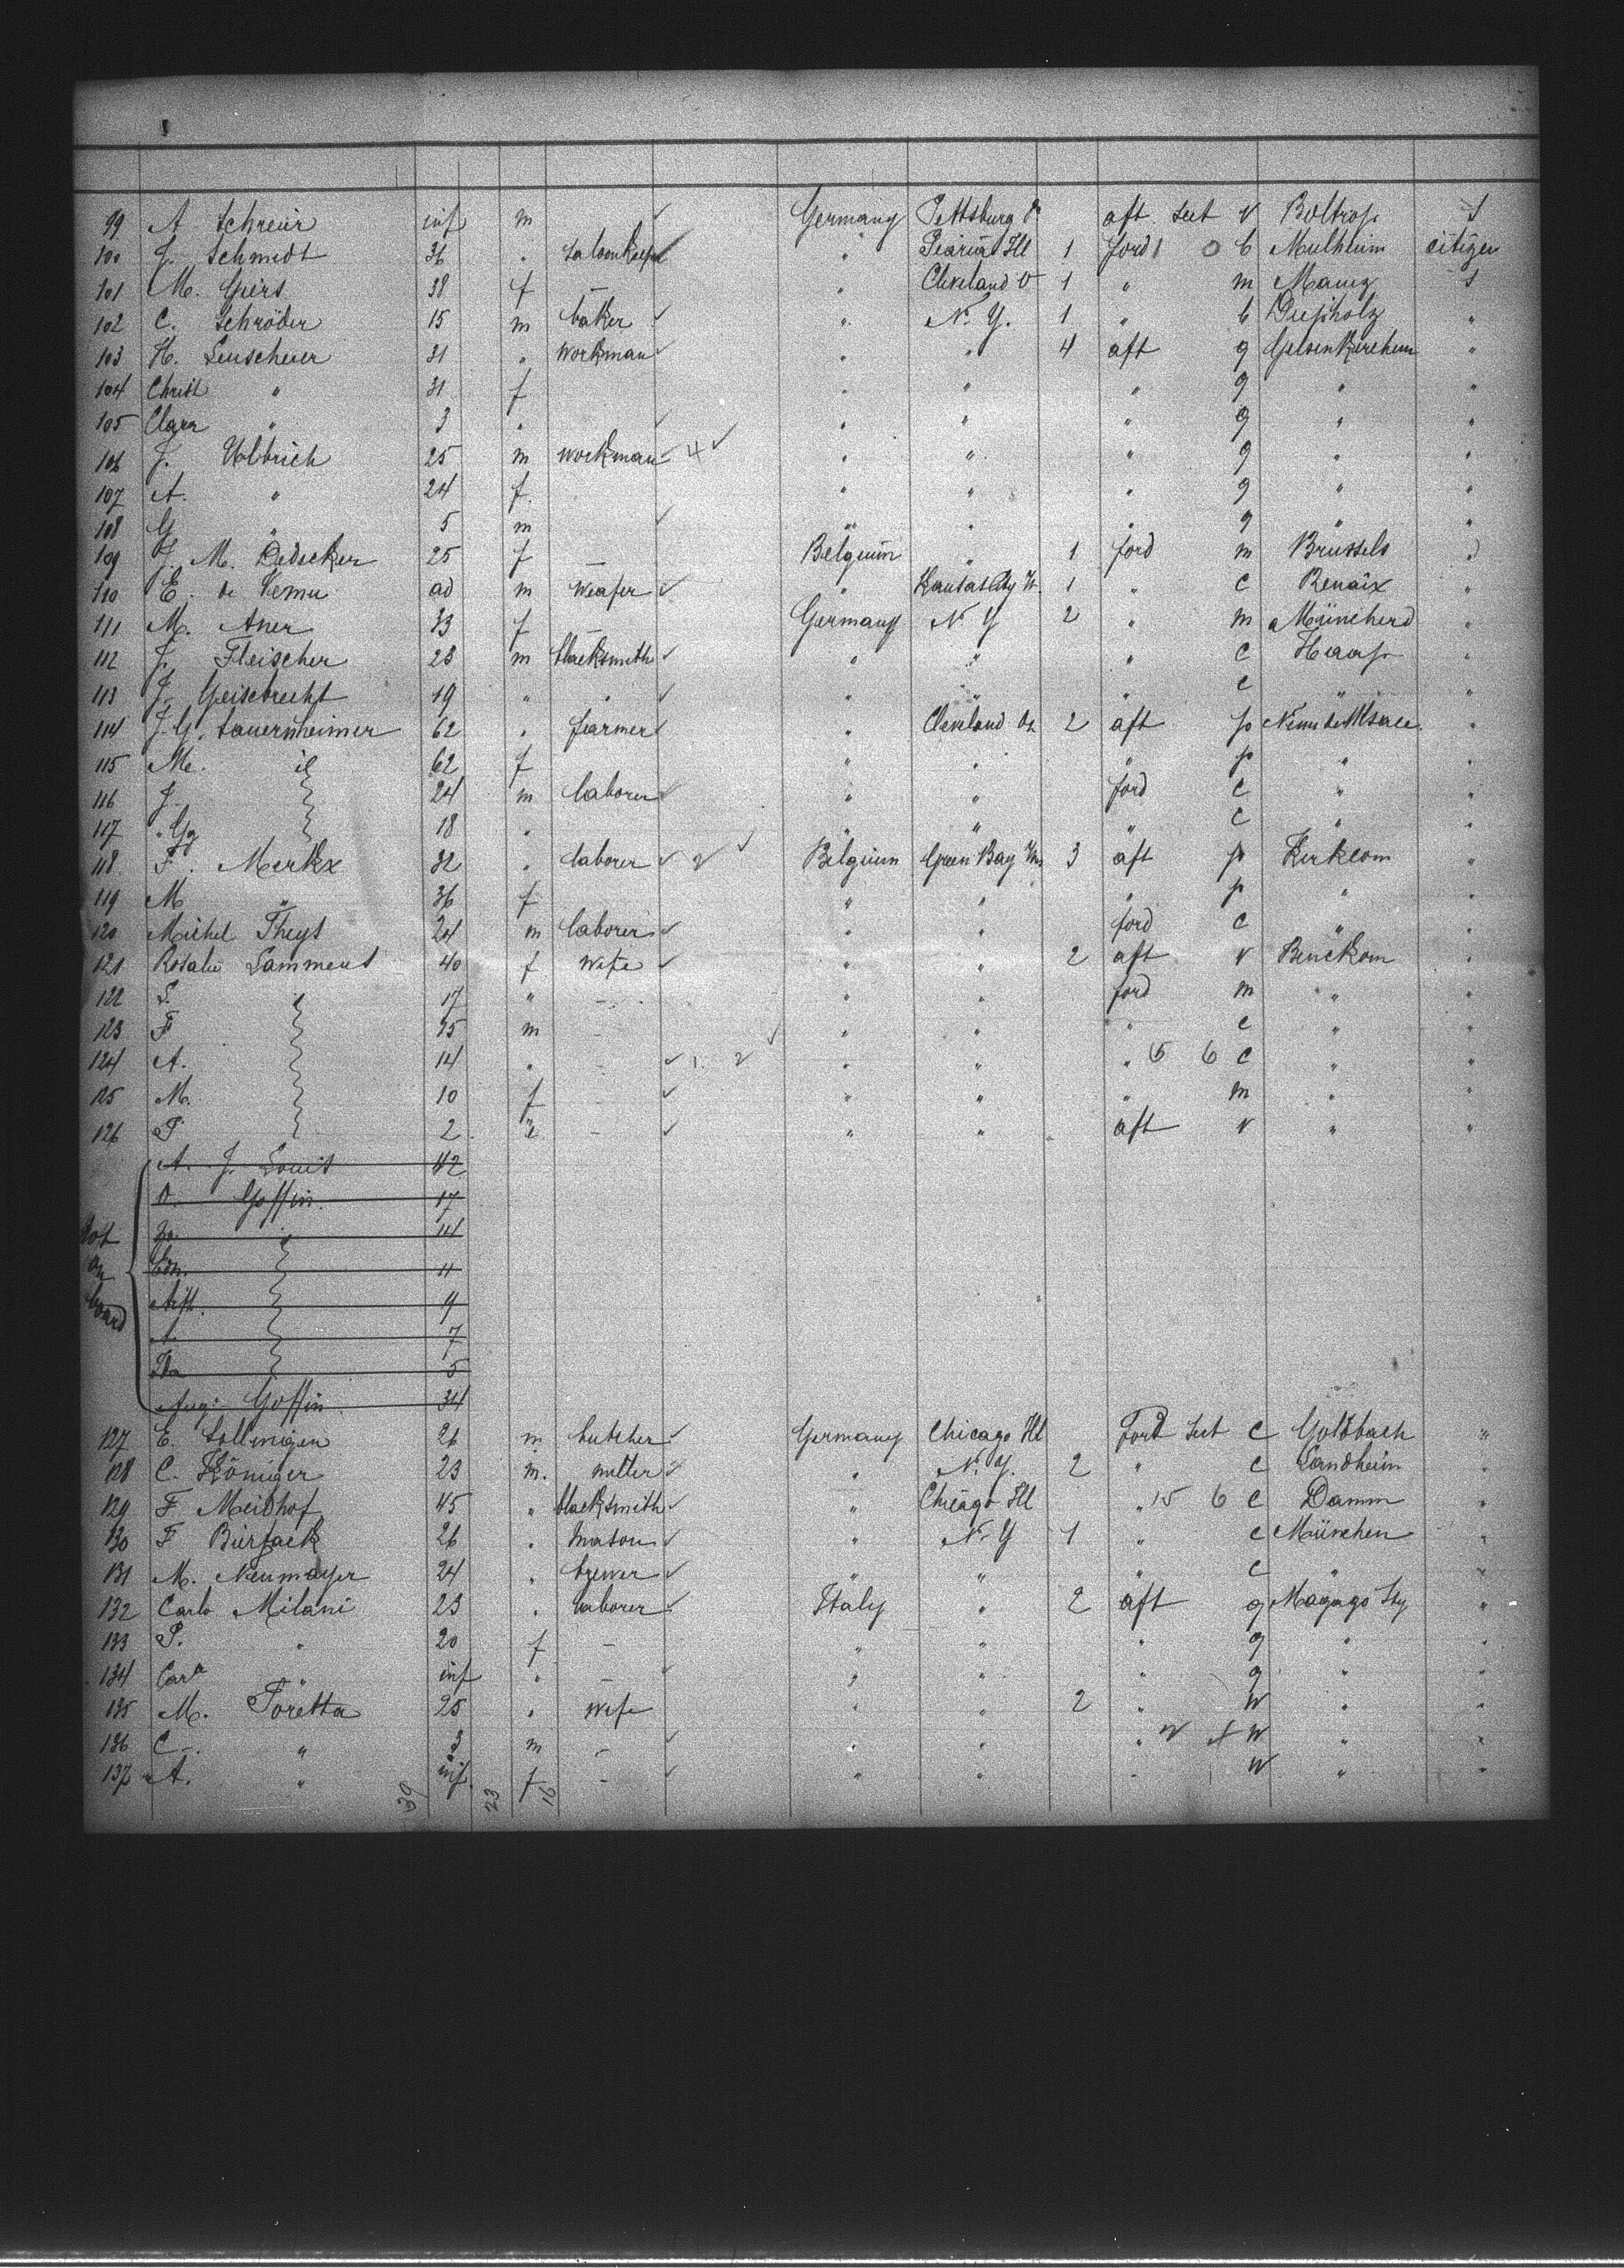 99 A Schreur inf m ✓ Germany Pittsburg Pa aft sect v Boltrop S
100 J. Schmidt 36 " saloonkeeper ✓ " Peoria Ill 1 ford 1 0 b Mulheim citizen
101 M. Giers 38 f — " Cleveland O 1 " m Mainz S
102 C. Schröder 15 m baker ✓ " N. Y. 1 " b Diepholz "
103 H. Leuscheuer 31 " workman ✓ " " 4 aft g Gelsenkirchen "
104 Christ " 31 f " " " g " "
105 Clara " 3 " ✓ " " " g " "
106 J. Ulbrich 25 m workman 4 ✓ " " " g " "
107 A. " 24 f. " " " g " "
108 G " 5 m ✓ " " " g " "
109 J. M. Dedecker 25 f — Belgium " 1 ford m Brussels "
110 E. de Vemu ad m weafer ✓ " Kansas City 1 " c Renaix "
111 M. Auer 33 f — Germany N Y 2 " m Müncherd "
112 J. Fleischer 28 m blacksmith ✓ " " " c Haap "
113 J. Geisebrecht 19 " " ✓ " " " c " "
114 J. G. Sauernheimer 62 " farmer ✓ " Cleveland O. 2 aft p "
115 M. " 62 f " " " p " "
116 J. 24 m laborer ✓ " " ford c " "
117 " Gg 18 " " " " c " "
118 F. Merkx 32 " laborer ✓ 2 ✓ Belgium Green Bay Wis 3 aft p Kerkom "
119 M " 36 f " " " p " "
120 Michel Theys 24 m laborer ✓ " " ford c " "
121 Rosalie Lammens 40 f wife ✓ " " 2 aft v Binckom "
122 S. " 17 " — " " ford m " "
123 F 15 m " " " c " "
124 A. 14 " - ✓ 1. 2 ✓ " " " 15 6 c " "
125 M. 10 f - ✓ " " " m " "
126 P. 2 " - ✓ " " aft v " "
A. J. Louis 42
D. Goffin 17
14
not on board
11
Arth. 9
A. 7
Ida 5
Aug. Goffin 34
127 E. Sollinigen 26 m butcher ✓ Germany Chicago Ill ford sect c Goldbach "
128 C. Königer 23 m. miller ✓ " N. Y. 2 " c Landheim "
129 F Meidhof 45 " blacksmith ✓ " Chicago Ill " 15 6 c Damm "
130 F Burjack 26 " mason ✓ " N. Y 1 " c München "
131 M. Neumayer 24 " brewer ✓ " " " c " "
132 Carlo Milani 23 " laborer ✓ Italy " 2 aft g Magago Ity "
133 P. " 20 f — " " " g " "
134 Carl " inf " — ✓ " " " g " "
135 M. Toretta 25 " wife " " 2 " W " "
136 C. " 3 m — ✓ " " " W " "
137 A. " inf. f — ✓ " " " W " "
39 23 16